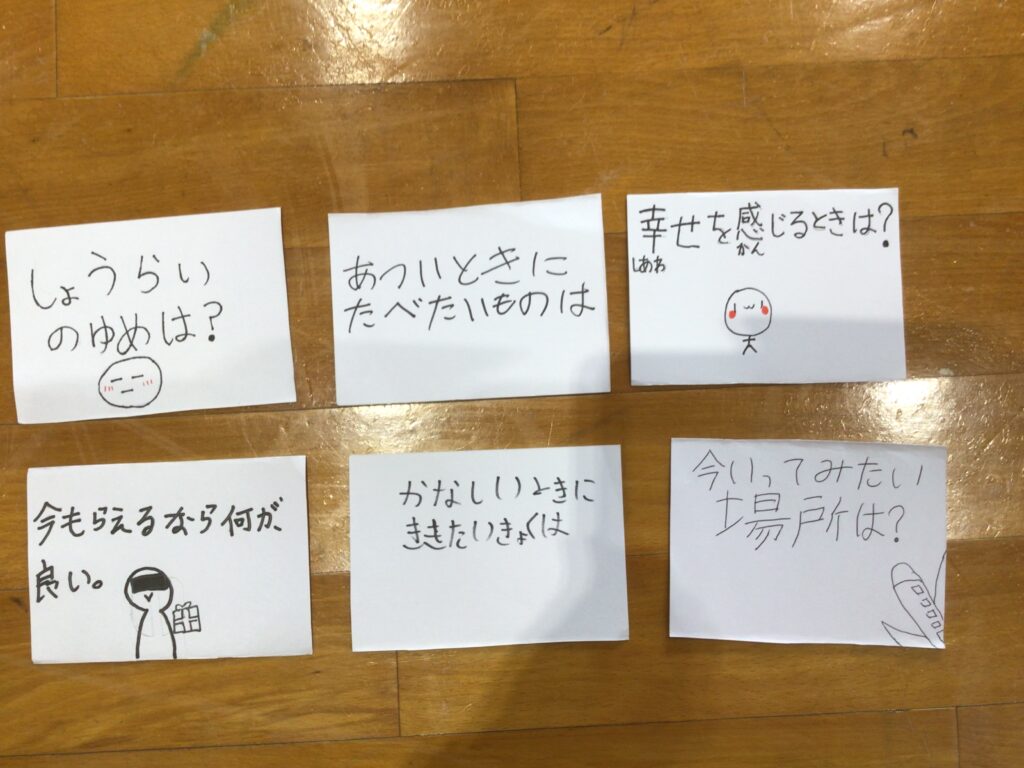 しょうらい
のゆめは?
あついときに
たべたいものは
幸せを感じるときは?
しあわ
かん
今もらえるなら何が、
良い。
かなしいときに
ききたいきょくは
今いってみたい
場所は?